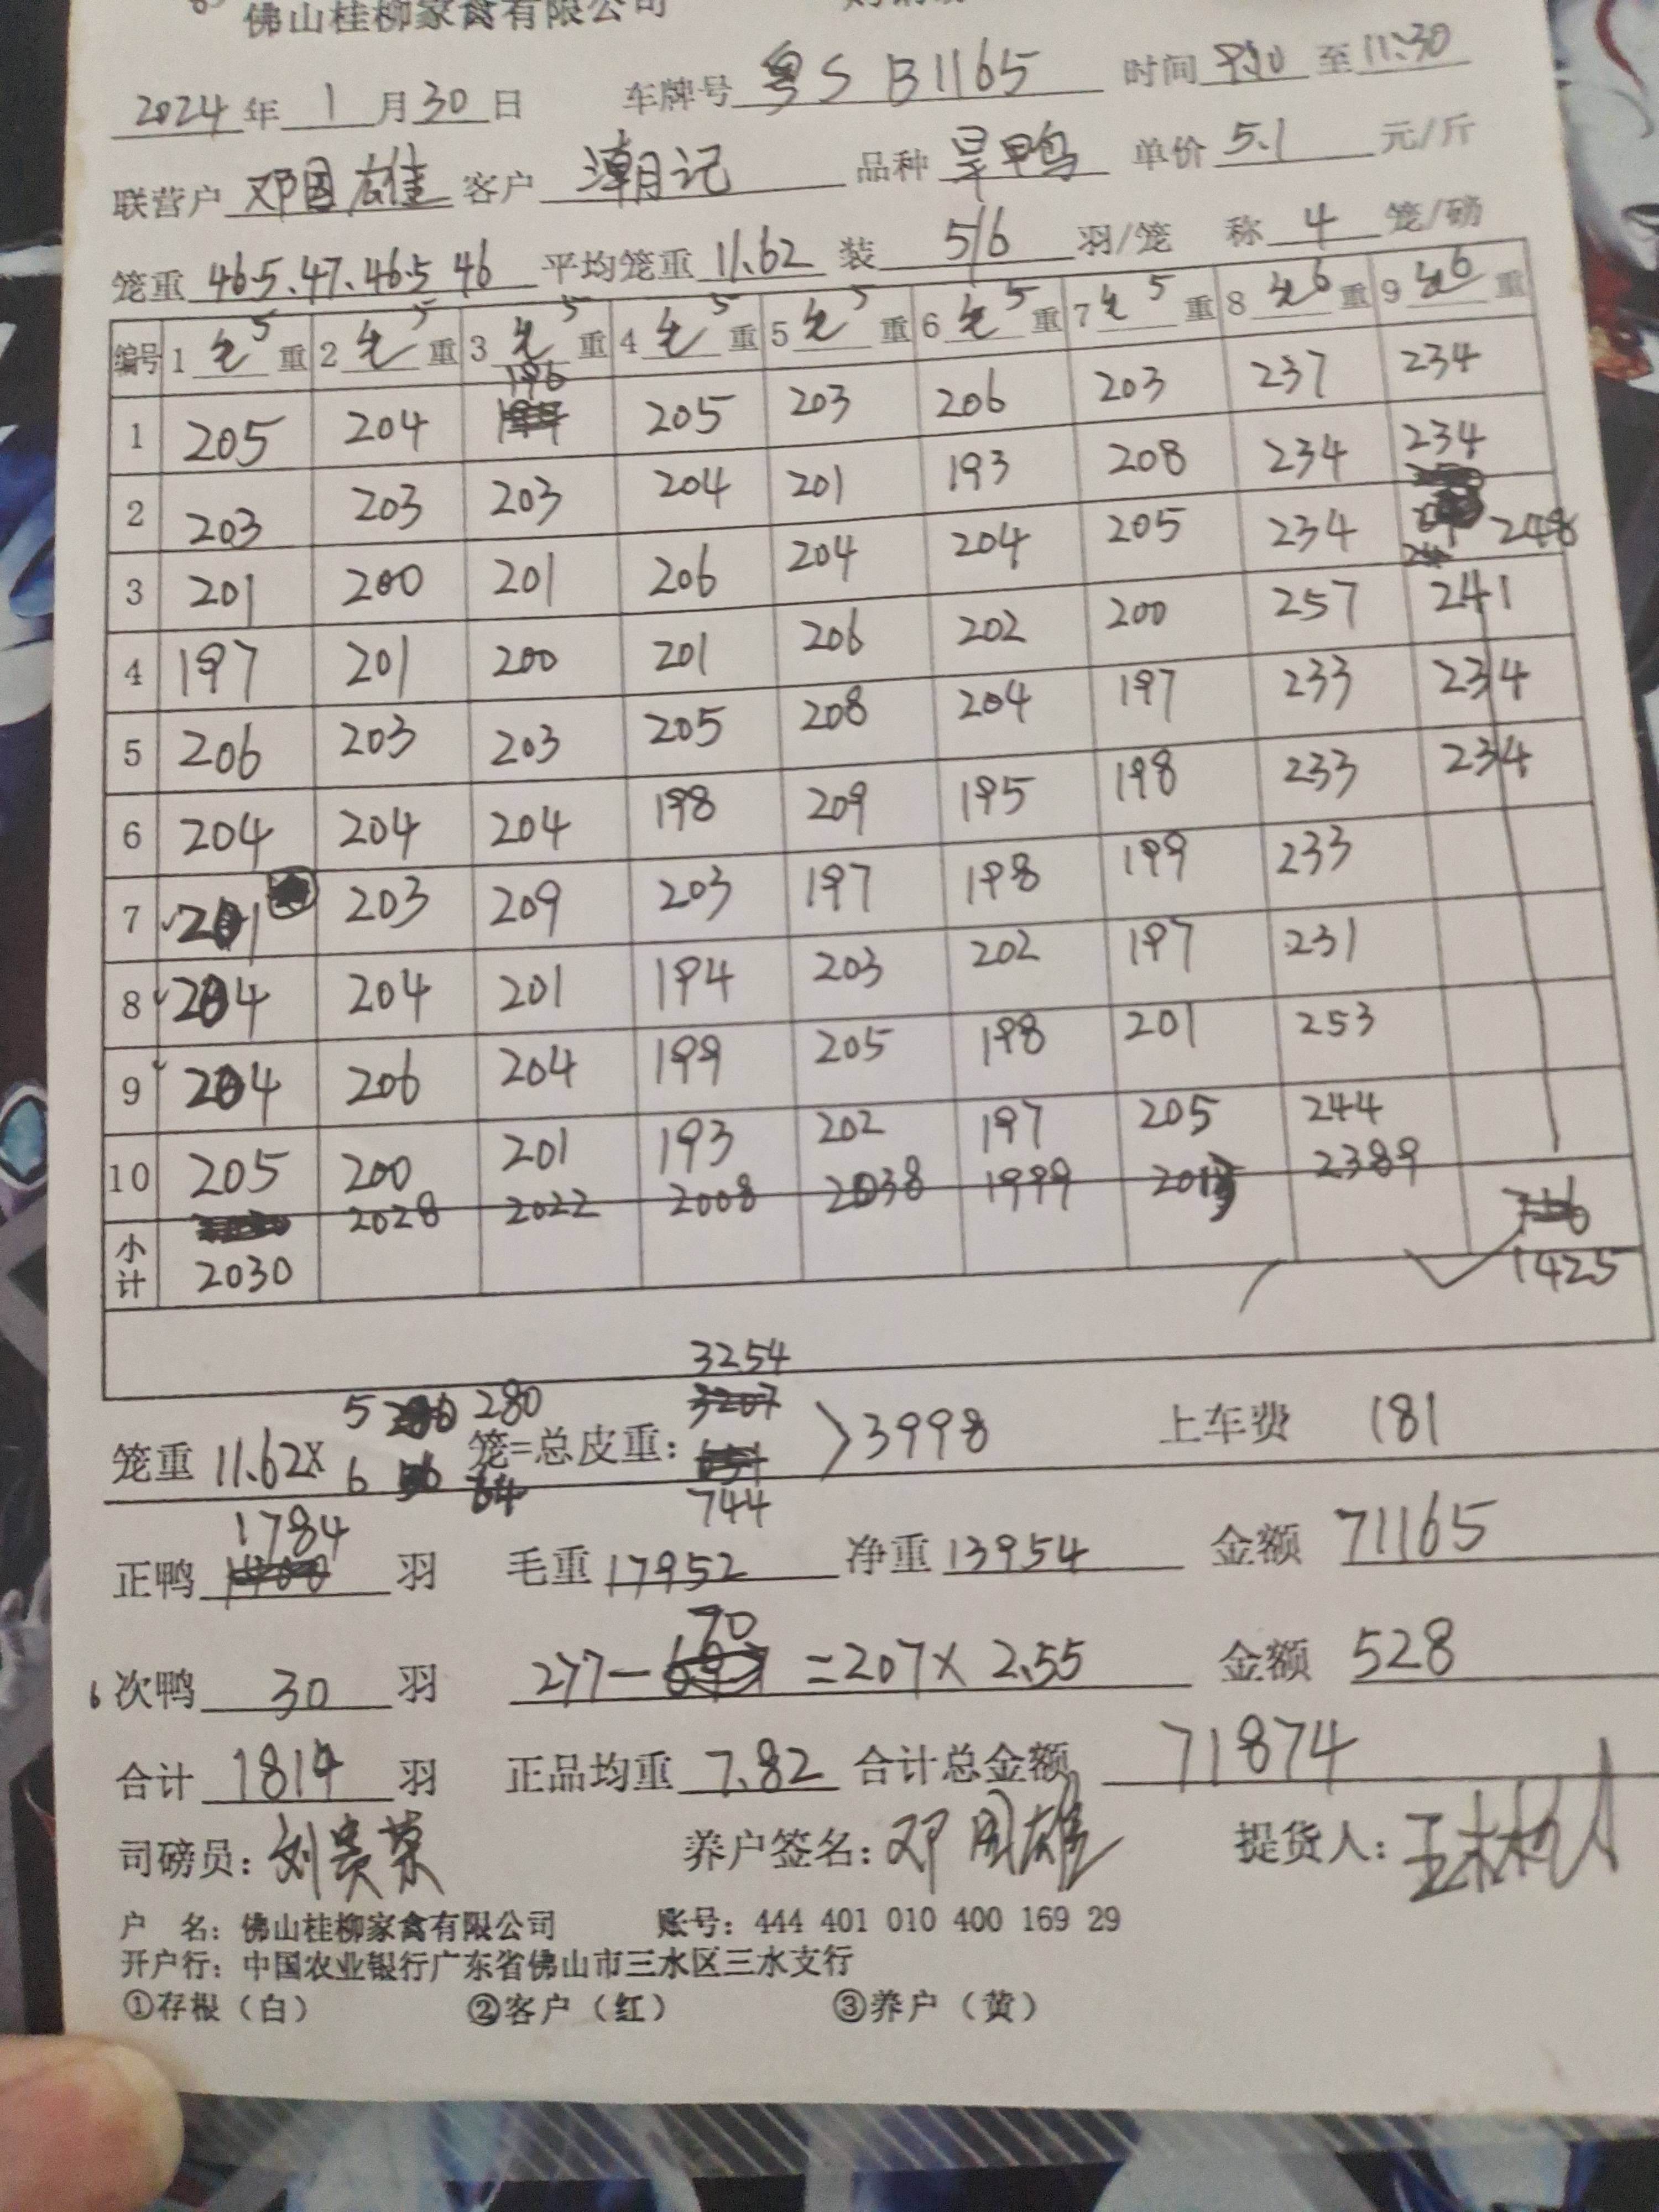 佛山桂柳家禽有限公司
2024年 1 月 30 日 车牌号 粤S B1165 时间 至 11:30
联营户 邓国雄 客户 潮记 品种 旱鸭 单价 5.1 元/斤
笼重 46.5、47、46.5 46 平均笼重 11.62 装 5/6 羽/笼 称 4 笼/磅
编号 1 毛5 重 2 毛5 重 3 毛5 重 4 毛5 重 5 毛5 重 6 毛5 重 7 毛5 重 8 毛6 重 9 毛6 重
1 205 204 196 205 203 206 203 237 234
2 203 203 203 204 201 193 208 234 234
3 201 200 201 206 204 204 205 234 248
4 197 201 200 201 206 202 200 257 241
5 206 203 203 205 208 204 197 233 234
6 204 204 204 198 209 195 198 233 234
7 201 203 209 203 197 198 199 233
8 204 204 201 194 203 202 197 231
9 204 206 204 199 205 198 201 253
10 205 200 201 193 202 197 205 244
小计 2030 2028 2022 2008 2038 1999 2013 2389 1425
笼重 11.62× 5 280 6 64 笼=总皮重: 3254 744 >3998 上车费 181
正鸭 1784 羽 毛重 17952 净重 13954 金额 71165
6 次鸭 30 羽 277-70=207×2.55 金额 528
合计 1814 羽 正品均重 7.82 合计总金额 71874
司磅员: 刘贵荣 养户签名: 邓国雄 提货人:
户 名: 佛山桂柳家禽有限公司 账号: 444 401 010 400 169 29
开户行: 中国农业银行广东省佛山市三水区三水支行
①存根(白) ②客户(红) ③养户(黄)